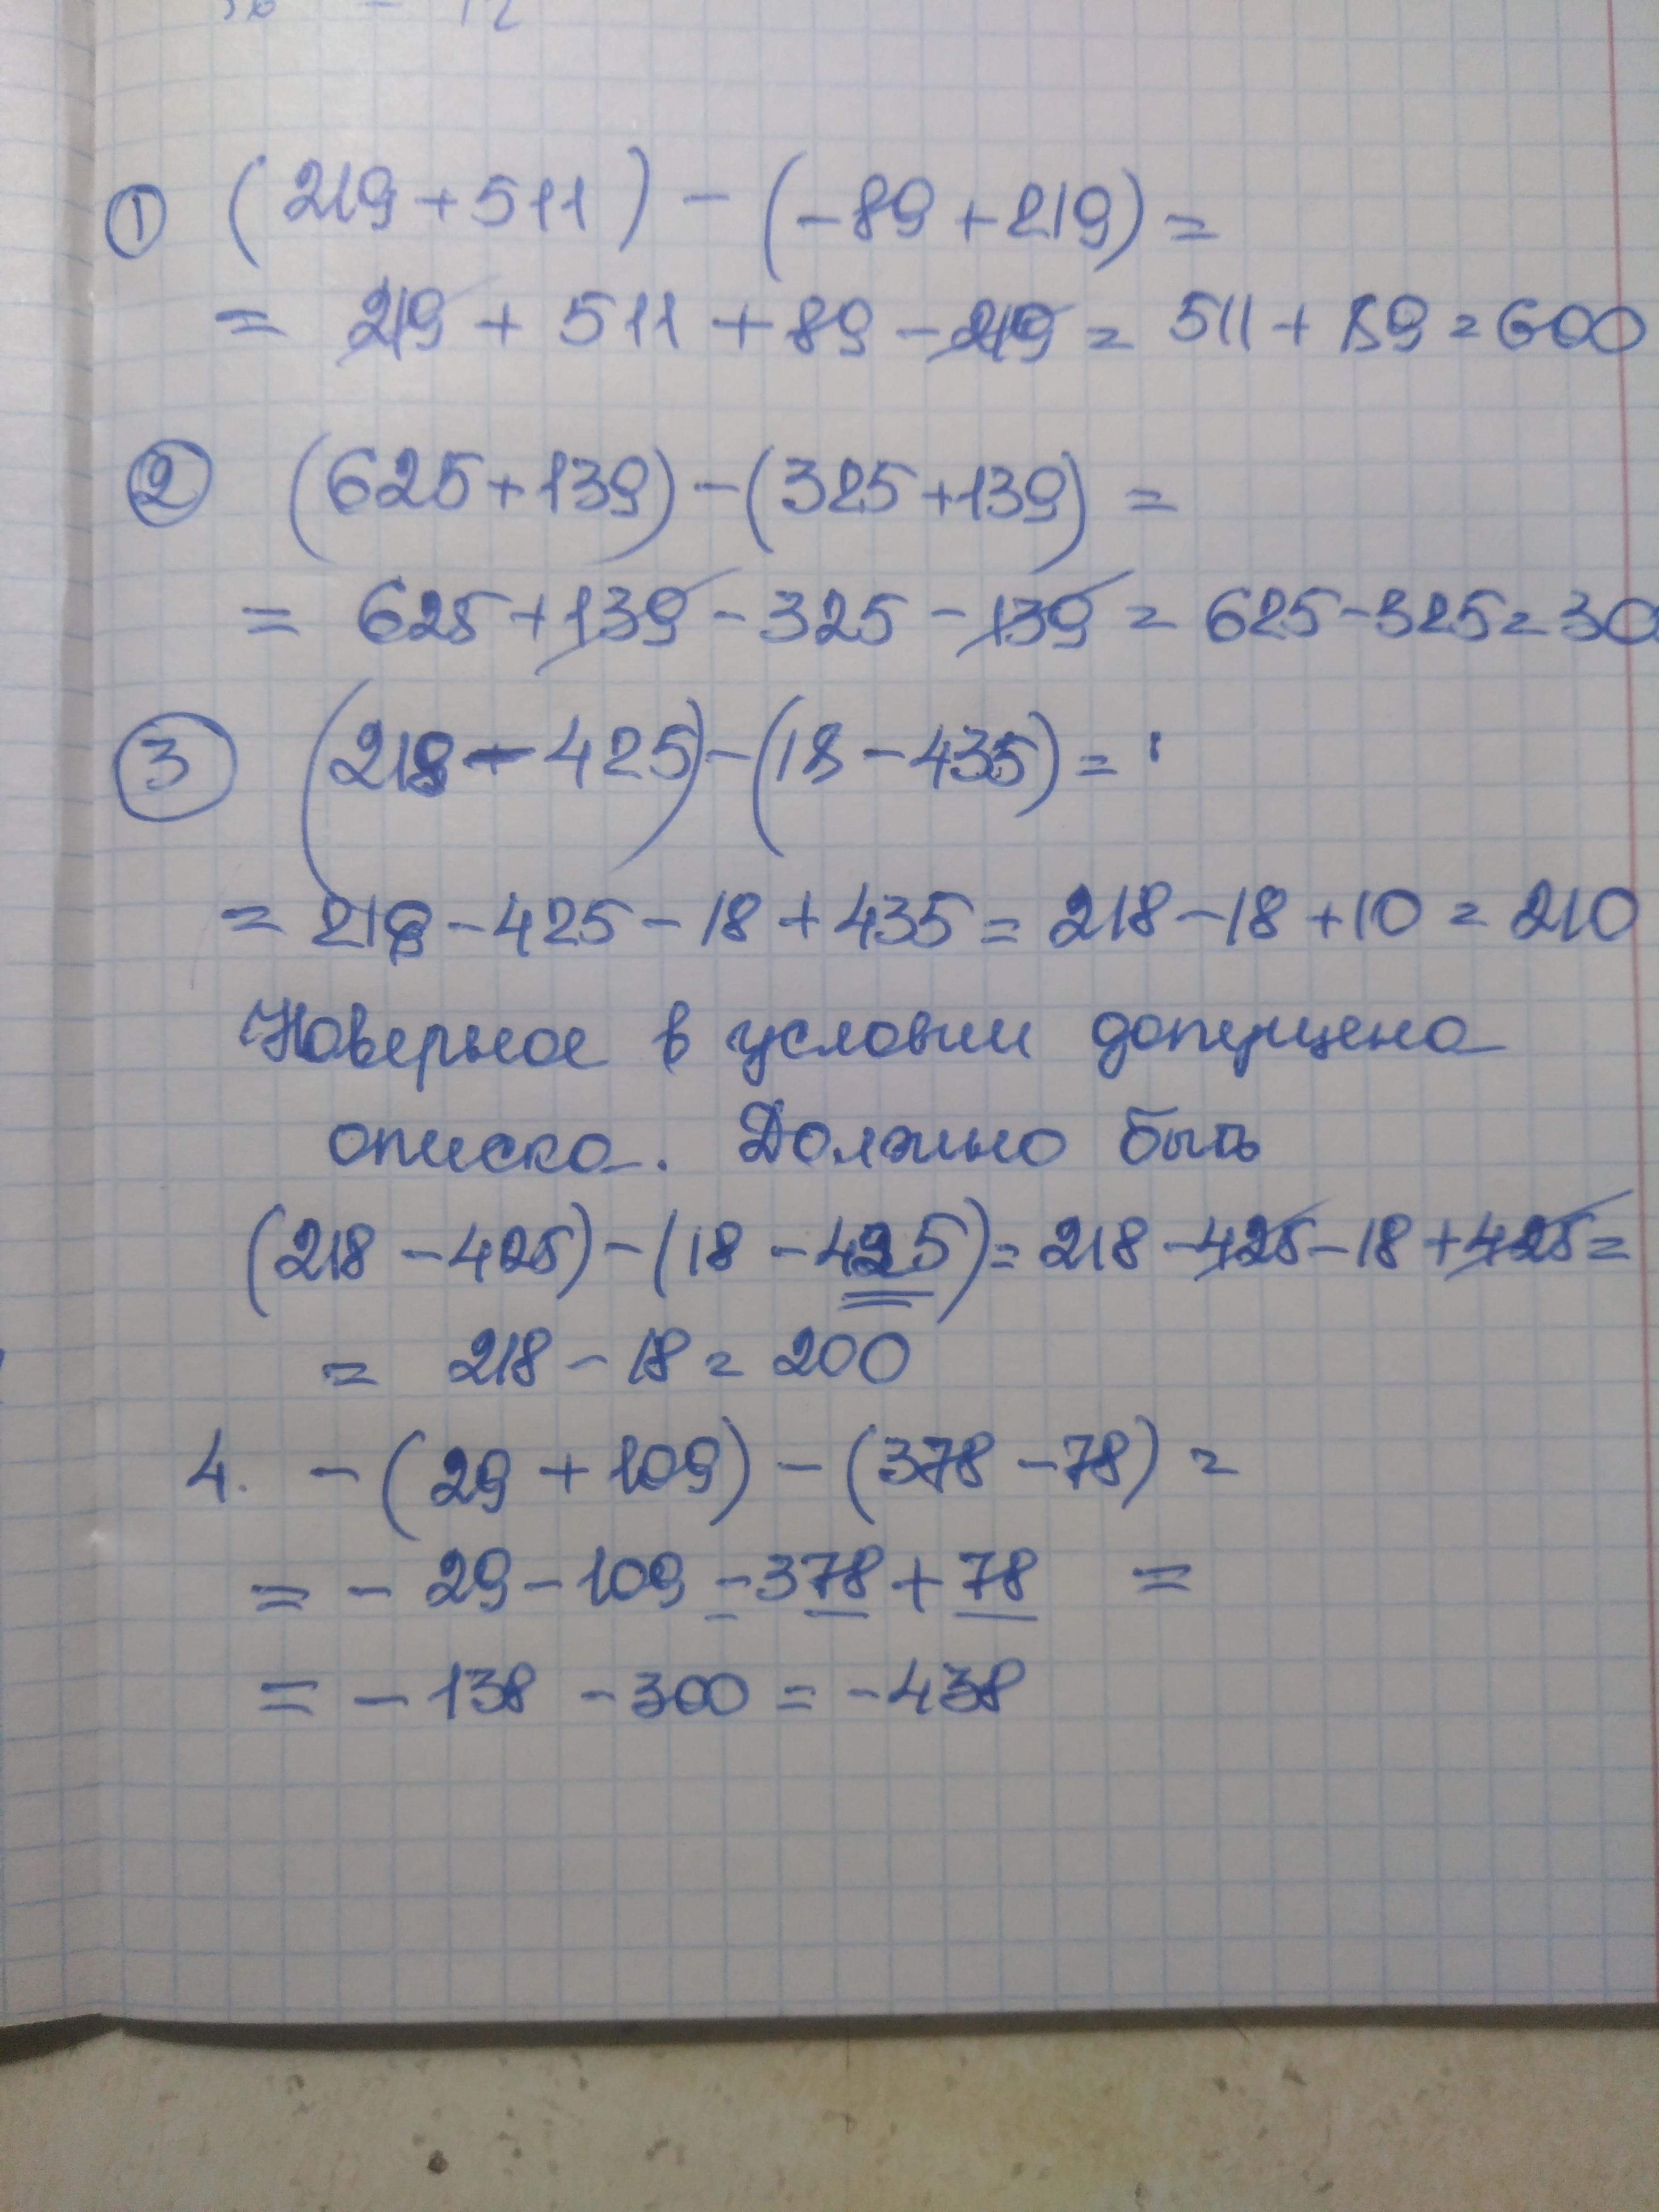 ① (219+511)-(-89+219)=
= 219+511+89-219=511+89=600
② (625+139)-(325+139)=
= 625+139-325-139=625-325=30
③ (218-425)-(18-435)=
= 218-425-18+435=218-18+10=210
Наверное в условии допущена
описка. Должно быть
(218-425)-(18-425)=218-425-18+425=
= 218-18=200
4. -(29+109)-(378-78)=
= -29-109-378+78 =
= -138-300=-438